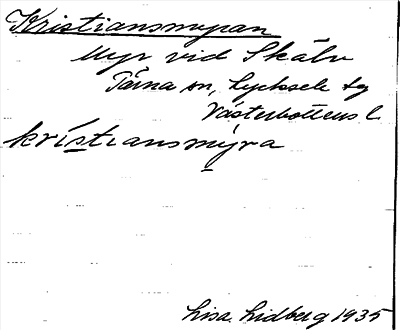 Kristiansmyran
Myr vid Skälv
Tärna sn, Lycksele tg
Västerbottens l
kristiansmýra
Lisa Lidberg 1935